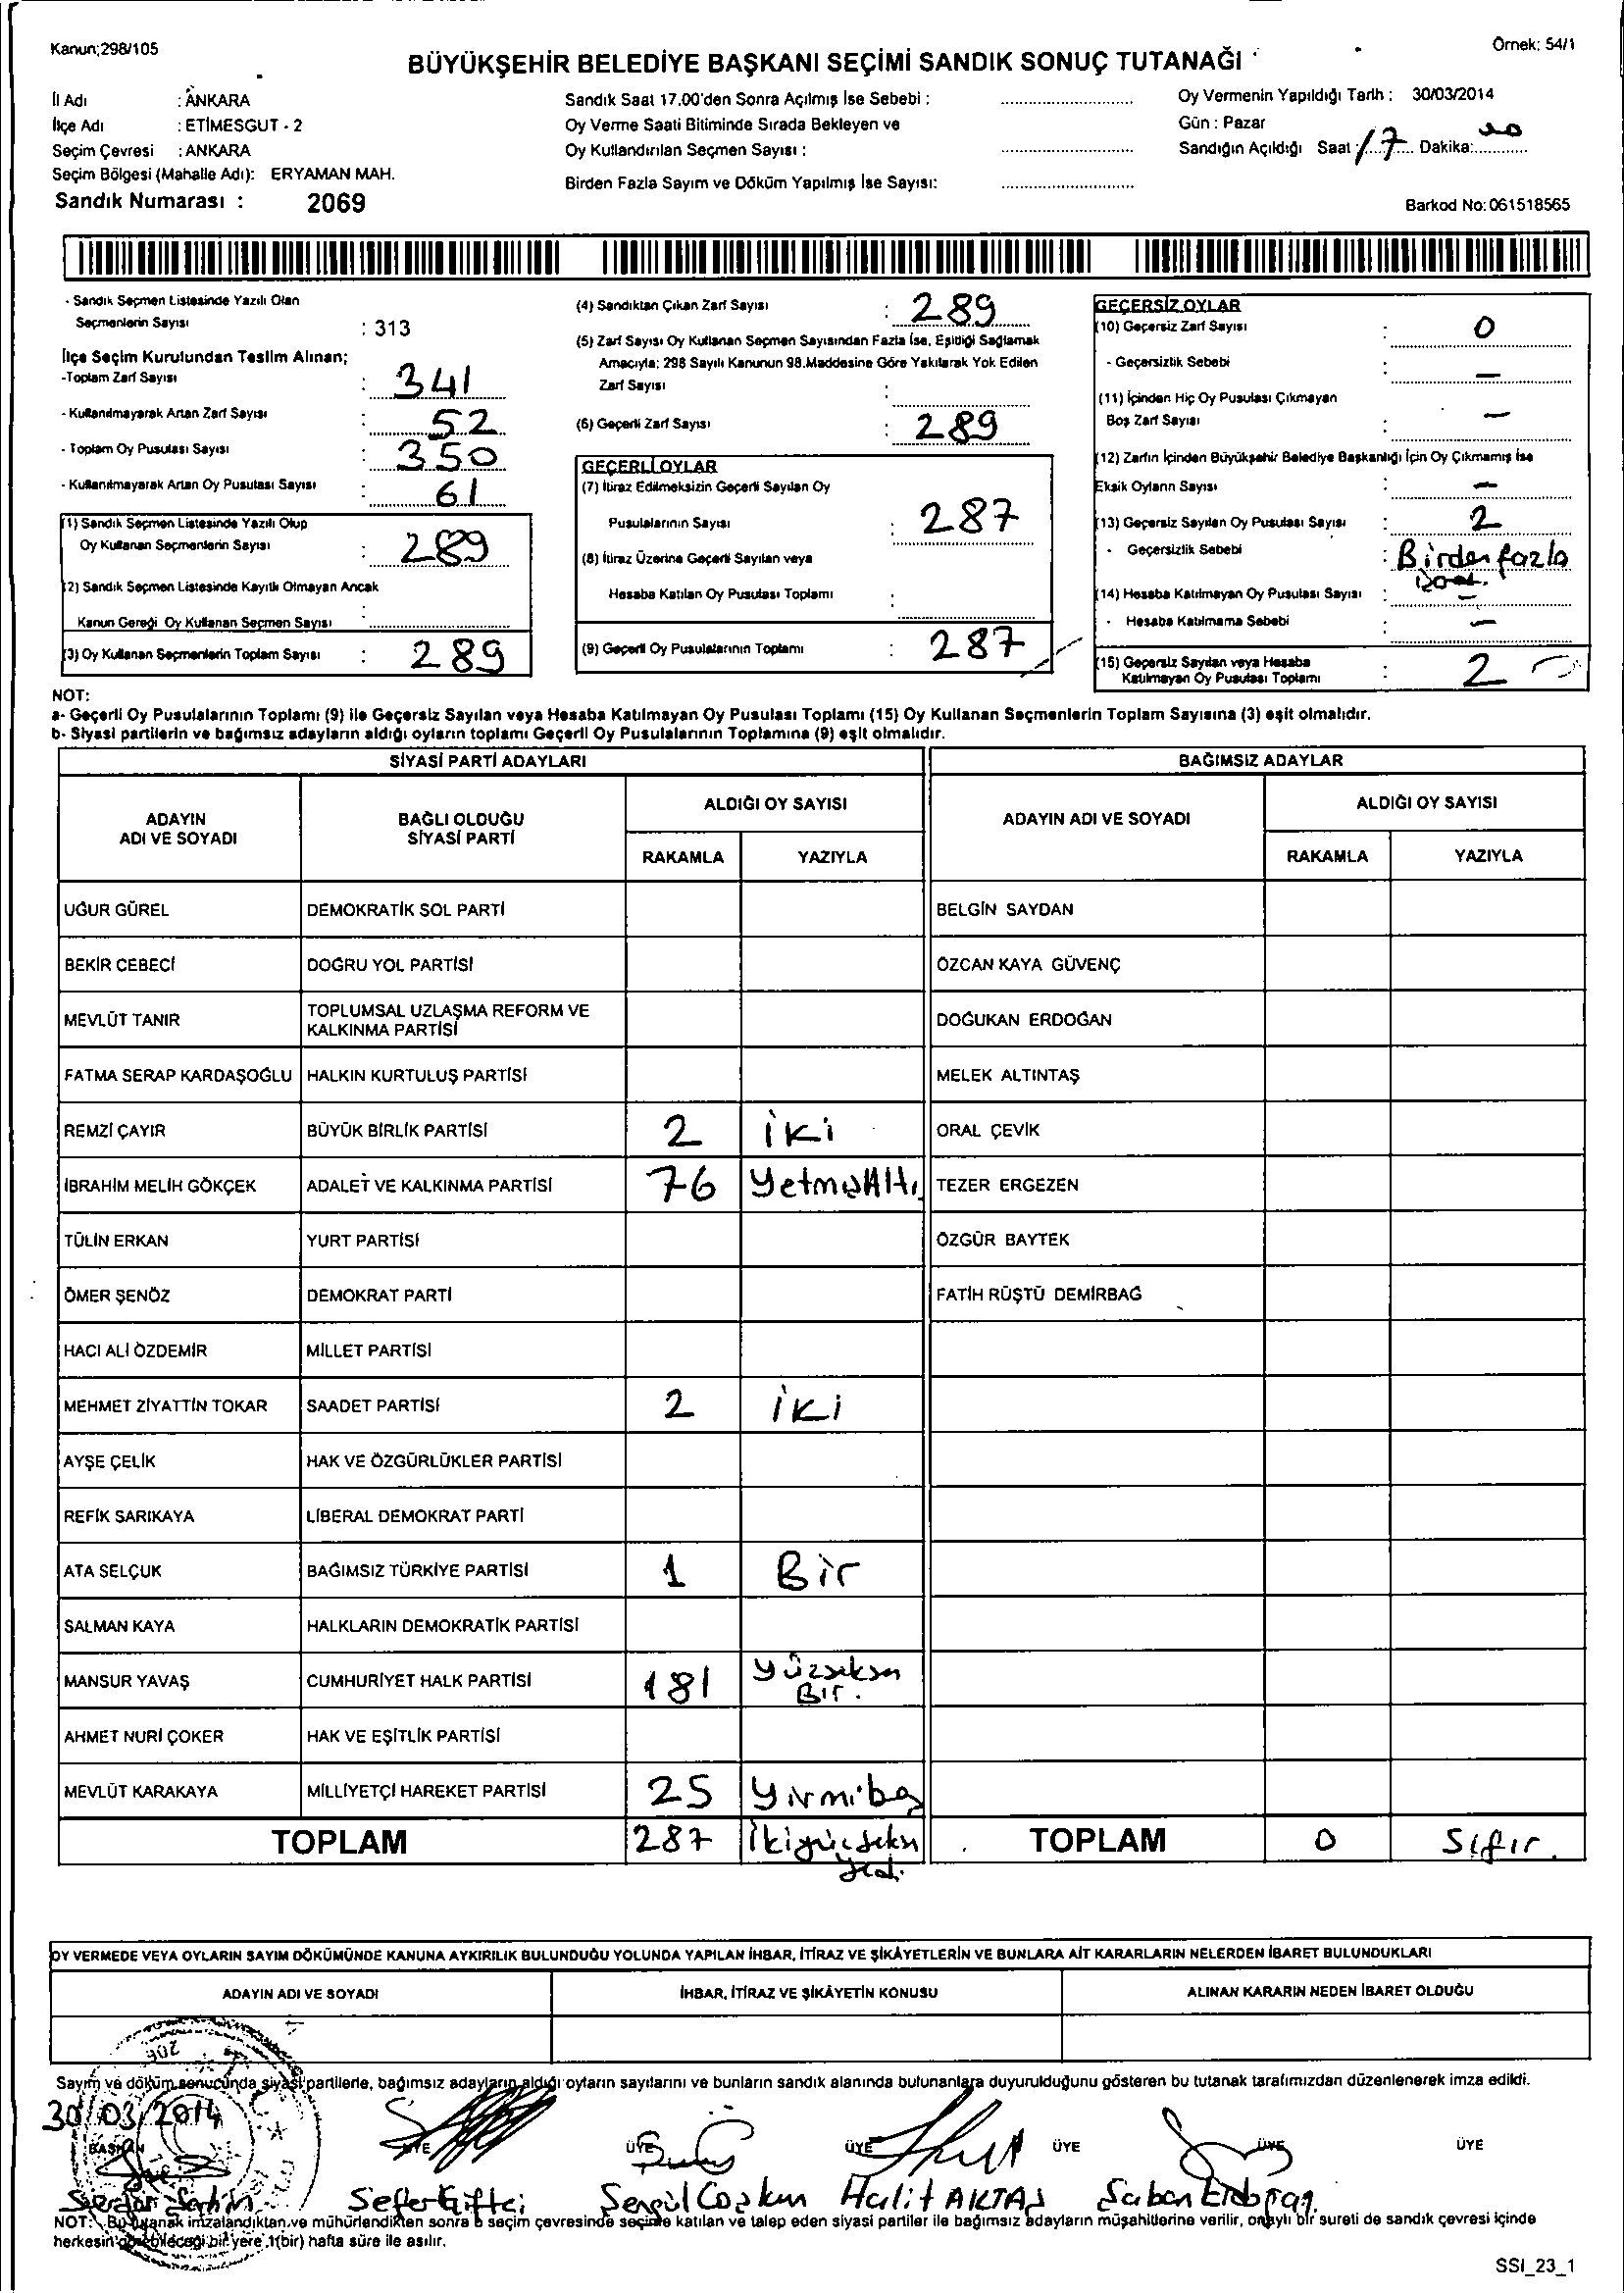 Kanun;298/105
Örnek: 54/1
BÜYÜKŞEHİR BELEDİYE BAŞKANI SEÇİMİ SANDIK SONUÇ TUTANAĞI
İl Adı : ANKARA
İlçe Adı : ETİMESGUT - 2
Seçim Çevresi : ANKARA
Seçim Bölgesi (Mahalle Adı): ERYAMAN MAH.
Sandık Numarası : 2069
Sandık Saat 17.00'den Sonra Açılmış İse Sebebi :
Oy Verme Saati Bitiminde Sırada Bekleyen ve
Oy Kullandırılan Seçmen Sayısı :
Birden Fazla Sayım ve Döküm Yapılmış İse Sayısı:
Oy Vermenin Yapıldığı Tarih : 30/03/2014
Gün : Pazar
Sandığın Açıldığı Saat : 17 Dakika:
Barkod No: 061518565
- Sandık Seçmen Listesinde Yazılı Olan
Seçmenlerin Sayısı : 313
İlçe Seçim Kurulundan Teslim Alınan;
-Toplam Zarf Sayısı : 341
- Kullanılmayarak Artan Zarf Sayısı : 52
- Toplam Oy Pusulası Sayısı : 350
- Kullanılmayarak Artan Oy Pusulası Sayısı : 61
(1) Sandık Seçmen Listesinde Yazılı Olup
Oy Kullanan Seçmenlerin Sayısı : 289
(2) Sandık Seçmen Listesinde Kayıtlı Olmayan Ancak
Kanun Gereği Oy Kullanan Seçmen Sayısı :
(3) Oy Kullanan Seçmenlerin Toplam Sayısı : 289
(4) Sandıktan Çıkan Zarf Sayısı : 289
(5) Zarf Sayısı Oy Kullanan Seçmen Sayısından Fazla İse, Eşitliği Sağlamak
Amacıyla; 298 Sayılı Kanunun 98.Maddesine Göre Yakılarak Yok Edilen
Zarf Sayısı :
(6) Geçerli Zarf Sayısı : 289
GEÇERLİ OYLAR
(7) İtiraz Edilmeksizin Geçerli Sayılan Oy
Pusulalarının Sayısı : 287
(8) İtiraz Üzerine Geçerli Sayılan veya
Hesaba Katılan Oy Pusulası Toplamı :
(9) Geçerli Oy Pusulalarının Toplamı : 287
GEÇERSİZ OYLAR
(10) Geçersiz Zarf Sayısı : 0
- Geçersizlik Sebebi : —
(11) İçinden Hiç Oy Pusulası Çıkmayan
Boş Zarf Sayısı : —
(12) Zarfın İçinden Büyükşehir Belediye Başkanlığı İçin Oy Çıkmamış İse
Eksik Oyların Sayısı : —
(13) Geçersiz Sayılan Oy Pusulası Sayısı : 2
- Geçersizlik Sebebi : Birden fazla
(14) Hesaba Katılmayan Oy Pusulası Sayısı : —
- Hesaba Katılmama Sebebi : —
(15) Geçersiz Sayılan veya Hesaba
Katılmayan Oy Pusulası Toplamı : 2
NOT:
a- Geçerli Oy Pusulalarının Toplamı (9) ile Geçersiz Sayılan veya Hesaba Katılmayan Oy Pusulası Toplamı (15) Oy Kullanan Seçmenlerin Toplam Sayısına (3) eşit olmalıdır.
b- Siyasi partilerin ve bağımsız adayların aldığı oyların toplamı Geçerli Oy Pusulalarının Toplamına (9) eşit olmalıdır.
SİYASİ PARTİ ADAYLARI
BAĞIMSIZ ADAYLAR
ADAYIN ADI VE SOYADI
BAĞLI OLDUĞU SİYASİ PARTİ
ALDIĞI OY SAYISI
RAKAMLA YAZIYLA
ADAYIN ADI VE SOYADI
ALDIĞI OY SAYISI
RAKAMLA YAZIYLA
UĞUR GÜREL DEMOKRATİK SOL PARTİ BELGİN SAYDAN
BEKİR CEBECİ DOĞRU YOL PARTİSİ ÖZCAN KAYA GÜVENÇ
MEVLÜT TANIR TOPLUMSAL UZLAŞMA REFORM VE KALKINMA PARTİSİ DOĞUKAN ERDOĞAN
FATMA SERAP KARDAŞOĞLU HALKIN KURTULUŞ PARTİSİ MELEK ALTINTAŞ
REMZİ ÇAYIR BÜYÜK BİRLİK PARTİSİ 2 İKİ ORAL ÇEVİK
İBRAHİM MELİH GÖKÇEK ADALET VE KALKINMA PARTİSİ 76 TEZER ERGEZEN
TÜLİN ERKAN YURT PARTİSİ ÖZGÜR BAYTEK
ÖMER ŞENÖZ DEMOKRAT PARTİ FATİH RÜŞTÜ DEMİRBAĞ
HACI ALİ ÖZDEMİR MİLLET PARTİSİ
MEHMET ZİYATTİN TOKAR SAADET PARTİSİ 2 İKİ
AYŞE ÇELİK HAK VE ÖZGÜRLÜKLER PARTİSİ
REFİK SARIKAYA LİBERAL DEMOKRAT PARTİ
ATA SELÇUK BAĞIMSIZ TÜRKİYE PARTİSİ 1 Bir
SALMAN KAYA HALKLARIN DEMOKRATİK PARTİSİ
MANSUR YAVAŞ CUMHURİYET HALK PARTİSİ 181 Yüzseksen Bir.
AHMET NURİ ÇOKER HAK VE EŞİTLİK PARTİSİ
MEVLÜT KARAKAYA MİLLİYETÇİ HAREKET PARTİSİ 25 Yirmibeş
TOPLAM 287 İkiyüzseksen yedi. TOPLAM 0 Sıfır.
OY VERMEDE VEYA OYLARIN SAYIM DÖKÜMÜNDE KANUNA AYKIRILIK BULUNDUĞU YOLUNDA YAPILAN İHBAR, İTİRAZ VE ŞİKÂYETLERİN VE BUNLARA AİT KARARLARIN NELERDEN İBARET BULUNDUKLARI
ADAYIN ADI VE SOYADI İHBAR, İTİRAZ VE ŞİKÂYETİN KONUSU ALINAN KARARIN NEDEN İBARET OLDUĞU
Sayım ve döküm sonucunda siyasi partilerle, bağımsız adayların aldığı oyların sayılarını ve bunların sandık alanında bulunanlara duyurulduğunu gösteren bu tutanak tarafımızdan düzenlenerek imza edildi.
30/03/2014
BAŞKAN ÜYE ÜYE ÜYE ÜYE ÜYE ÜYE
Serdar Şahin Sefer Çiftçi Şengül Coşkun Halit AKTAŞ Şaban Erdoğan
NOT: Bu tutanak imzalandıktan ve mühürlendikten sonra o seçim çevresinde seçime katılan ve talep eden siyasi partiler ile bağımsız adayların müşahitlerine verilir, onaylı bir sureti de sandık çevresi içinde
herkesin görebileceği bir yere 1(bir) hafta süre ile asılır.
SSI_23_1